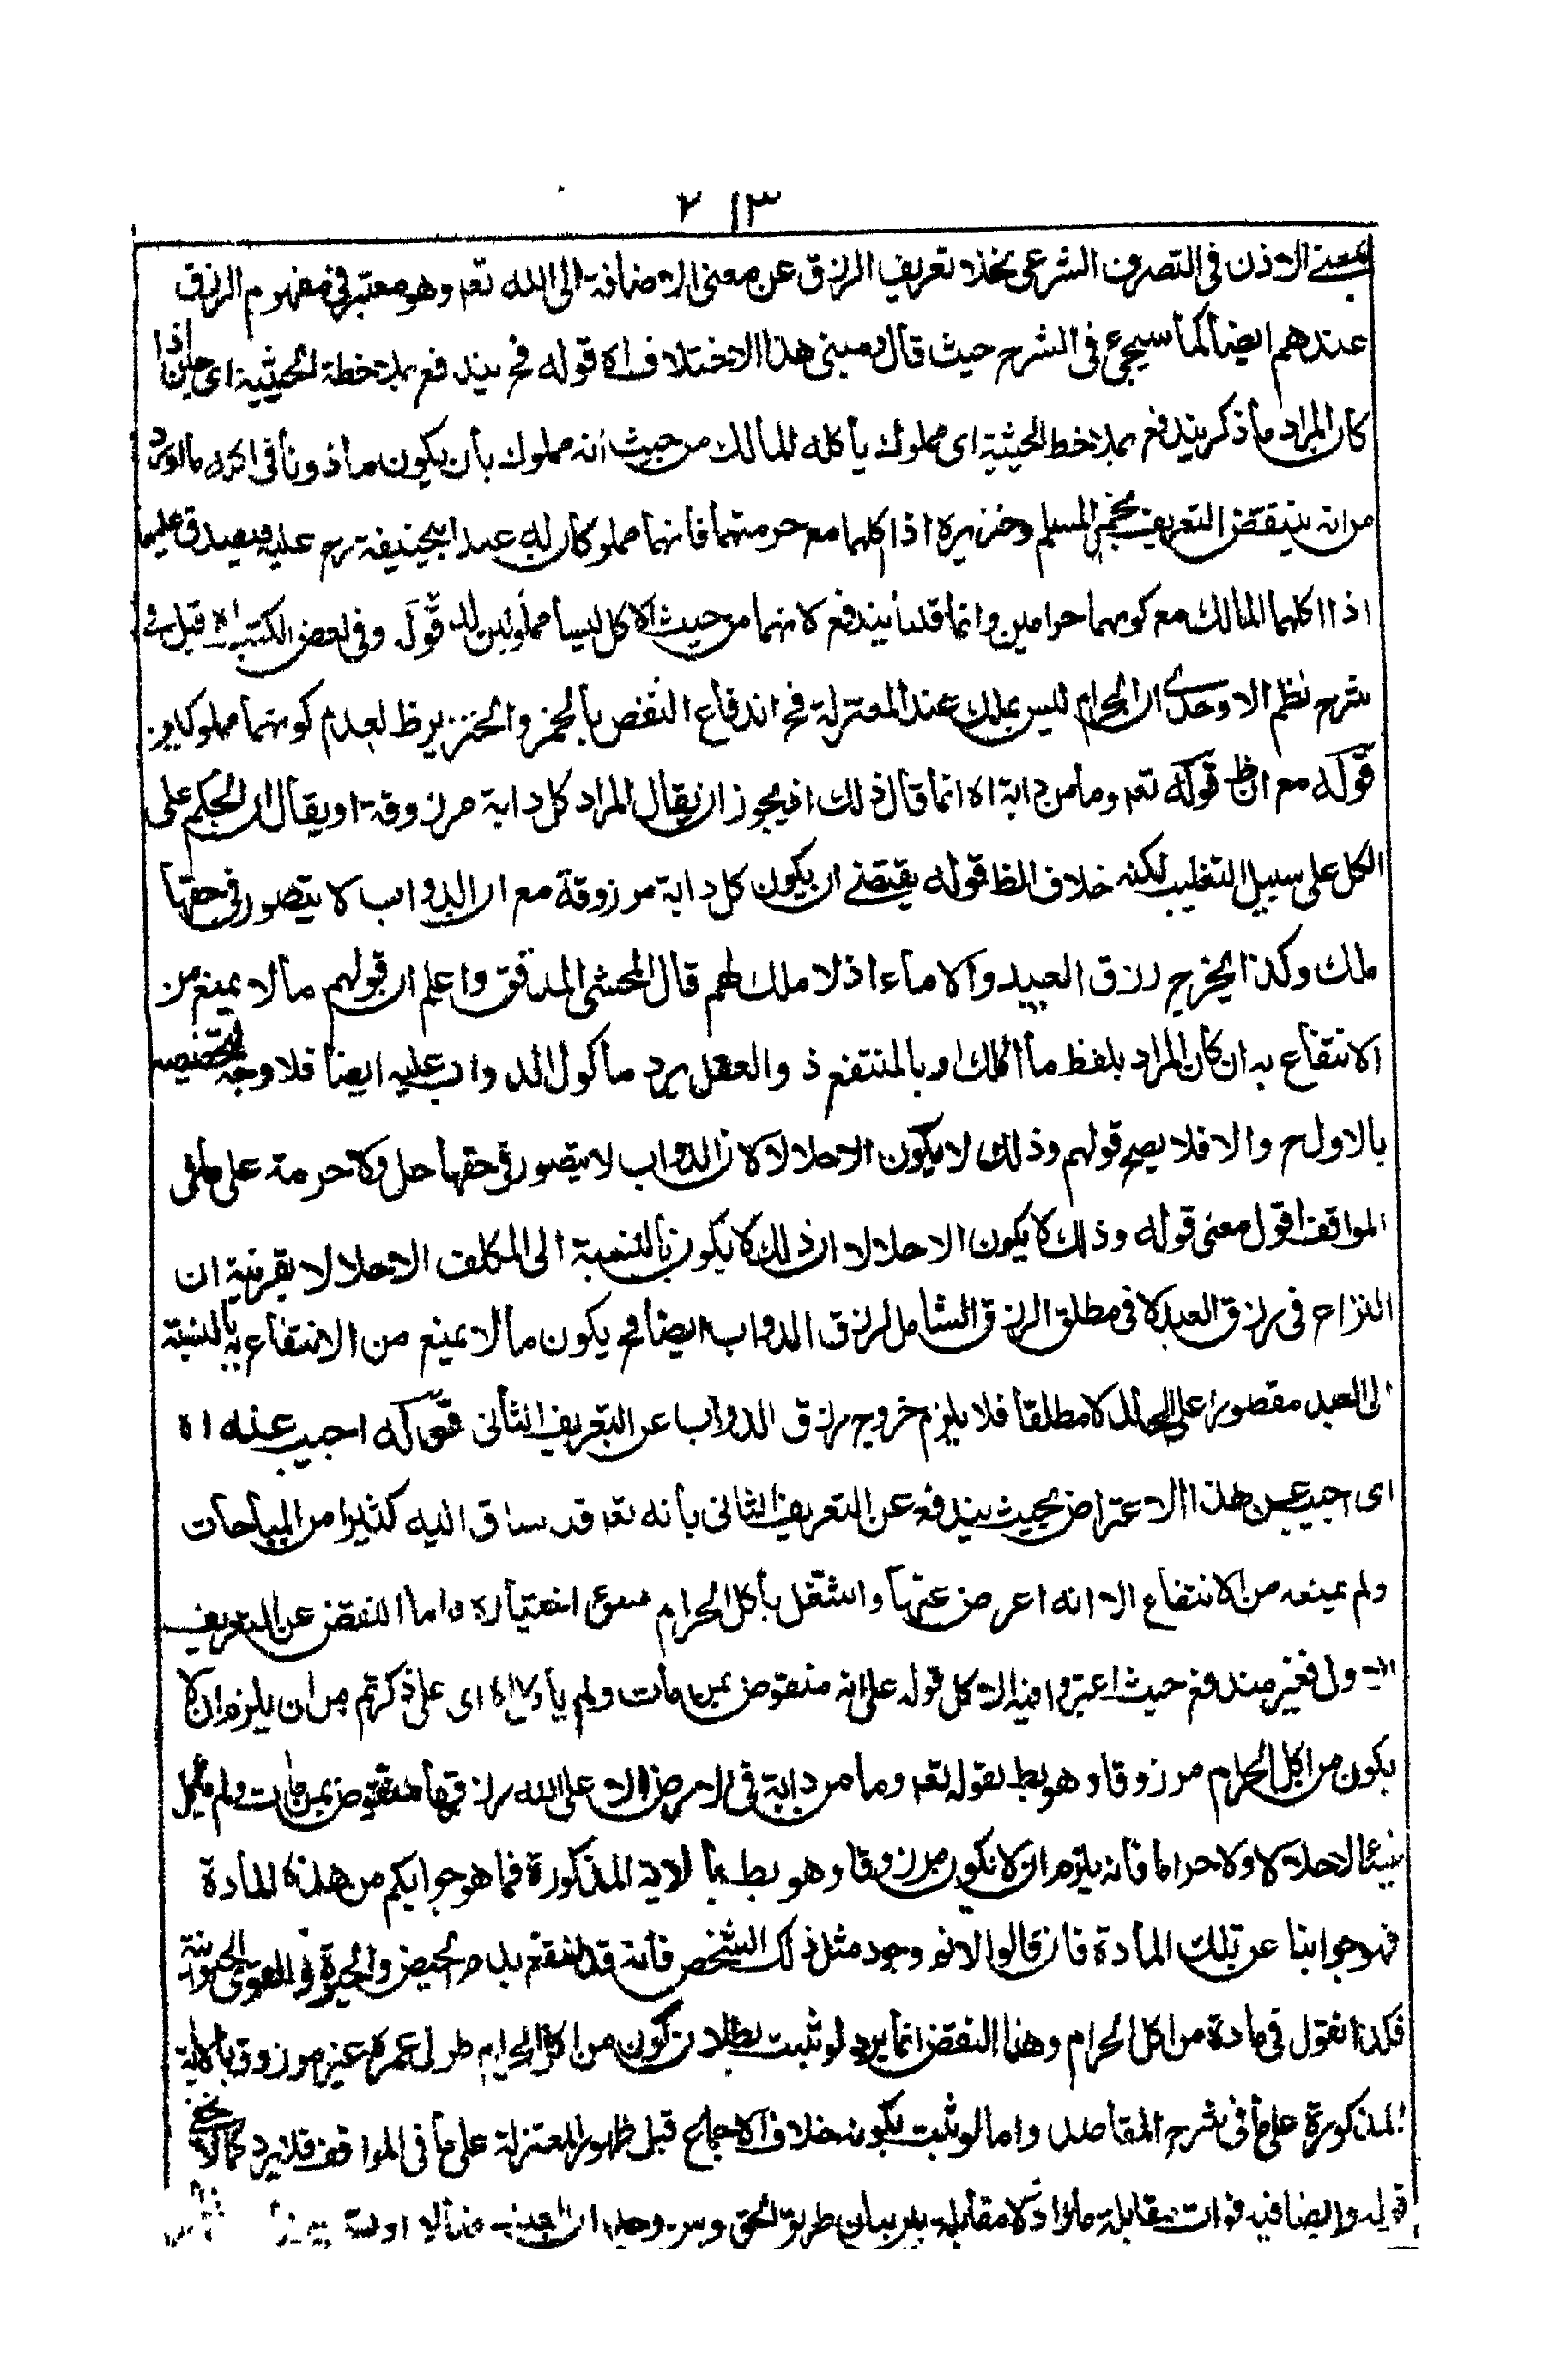 ٢١٣
بمعنى الاذن فى التصرف الشرعى يخلا تعريف الرزق عن معنى الاضافة الى الله تعه وهو معتبر فى مفهوم الرزق
عندهم ايضا كما سيجئ فى الشرح حيث قال ومبنى هذا الاختلاف اه قوله فح يندفع بملاحظة الحيثية اى حين اذا
كان المراد ما ذكر يندفع بملاحظ الحيثية اى مملوك يأكله المالك من حيث انه مملوك بأن يكون مأذونا فى اكله ما اورد
من انه ينتقض التعريف بخمر المسلم وخنزيره اذا اكلهما مع حرمتهما فانهما مملوكان له عند ابيحنيفة رح عليه فيصدق عليهما
اذا اكلهما المالك مع كونهما حرامين وانما قلنا يندفع لانهما من حيث الاكل ليسا مملوكين له قوله وفى بعض الكتب اه قيل فى
شرح نظم الاوحدى ان الحرام ليس بملك عند المعتزلة فح اندفاع النقض بالخمر والخنزير ظ لعدم كونهما مملوكين
قوله مع ان ظ قوله تعه وما من دابة اه انما قال ذلك اذ يجوز ان يقال المراد كل دابة مرزوقة او يقال ان الحكم على
الكل على سبيل التغليب لكنه خلاف الظ قوله يقتضى ان يكون كل دابة مرزوقة مع ان الدواب لا يتصور فى حقها
ملك وكذا يخرج رزق العبيد والاماء اذ لا ملك لهم قال المحشى المدقق واعلم ان قولهم ما لا يمنع من
الانتفاع به ان كان المراد بلفظ ما الملك او بالمنتفع ذ والعقل يرد مأكول الدواب عليه ايضا فلا وجه لتخصيصه
بالاول ح والا فلا يصح قولهم وذلك لا يكون الا حلالا لان الدواب لا يتصور فى حقها حل ولا حرمة على ما فى
المواقف اقول معنى قوله وذلك لا يكون الا حلالا ان ذلك لا يكون بالنسبة الى المكلف الا حلالا بقرينة ان
النزاع فى رزق العبد لا فى مطلق الرزق الشامل لرزق الدواب ايضا فح يكون ما لا يمنع من الانتفاع به بالنسبة
الى العبد مقصورا على الحلال لا مطلقا فلا يلزم خروج رزق الدواب عن التعريف الثانى قوله اجيب عنه اه
اى اجيب عن هذا الاعتراض بحيث يندفع عن التعريف الثانى بأنه تعه قد ساق اليه كثيرا من المباحات
ولم يمنعه من الانتفاع الا انه اعرض عنها واشتغل بأكل الحرام بسوء اختياره واما النقض عن التعريف
الاول فغير مندفع حيث اعتبروا فيه الاكل قوله على انه منقوض بمن مات ولم يأكل اه اى على ما ذكرتم من ان يلزم ان لا
يكون من اكل الحرام مرزوقا وهو بط بقوله تعه وما من دابة فى الارض الا على الله رزقها منقوض بمن مات ولم يأكل
شيئا لا حلالا ولا حراما فانه يلزم ان لا يكون مرزوقا وهو بط بالاية المذكورة فما هو جوابكم من هذه المادة
فهو جوابنا عن تلك المادة فان قالوا لا نم وجود مثل ذلك الشخص فانه قد انتفع بدم الحيض والحيوة والقوى الحيوانية
فكذا نقول فى مادة من اكل الحرام وهذا النقض انما يرد لو ثبت بطلان كون من اكل الحرام طول عمره غير مرزوق بالاية
المذكورة على ما فى شرح المقاصد واما لو ثبت بكونه خلاف الاجماع قبل ظهور المعتزلة على ما فى المواقف فلا يرد كما لا يخفى
قوله وايضا فيه فوات مقابلة بين بيان طريق الحق